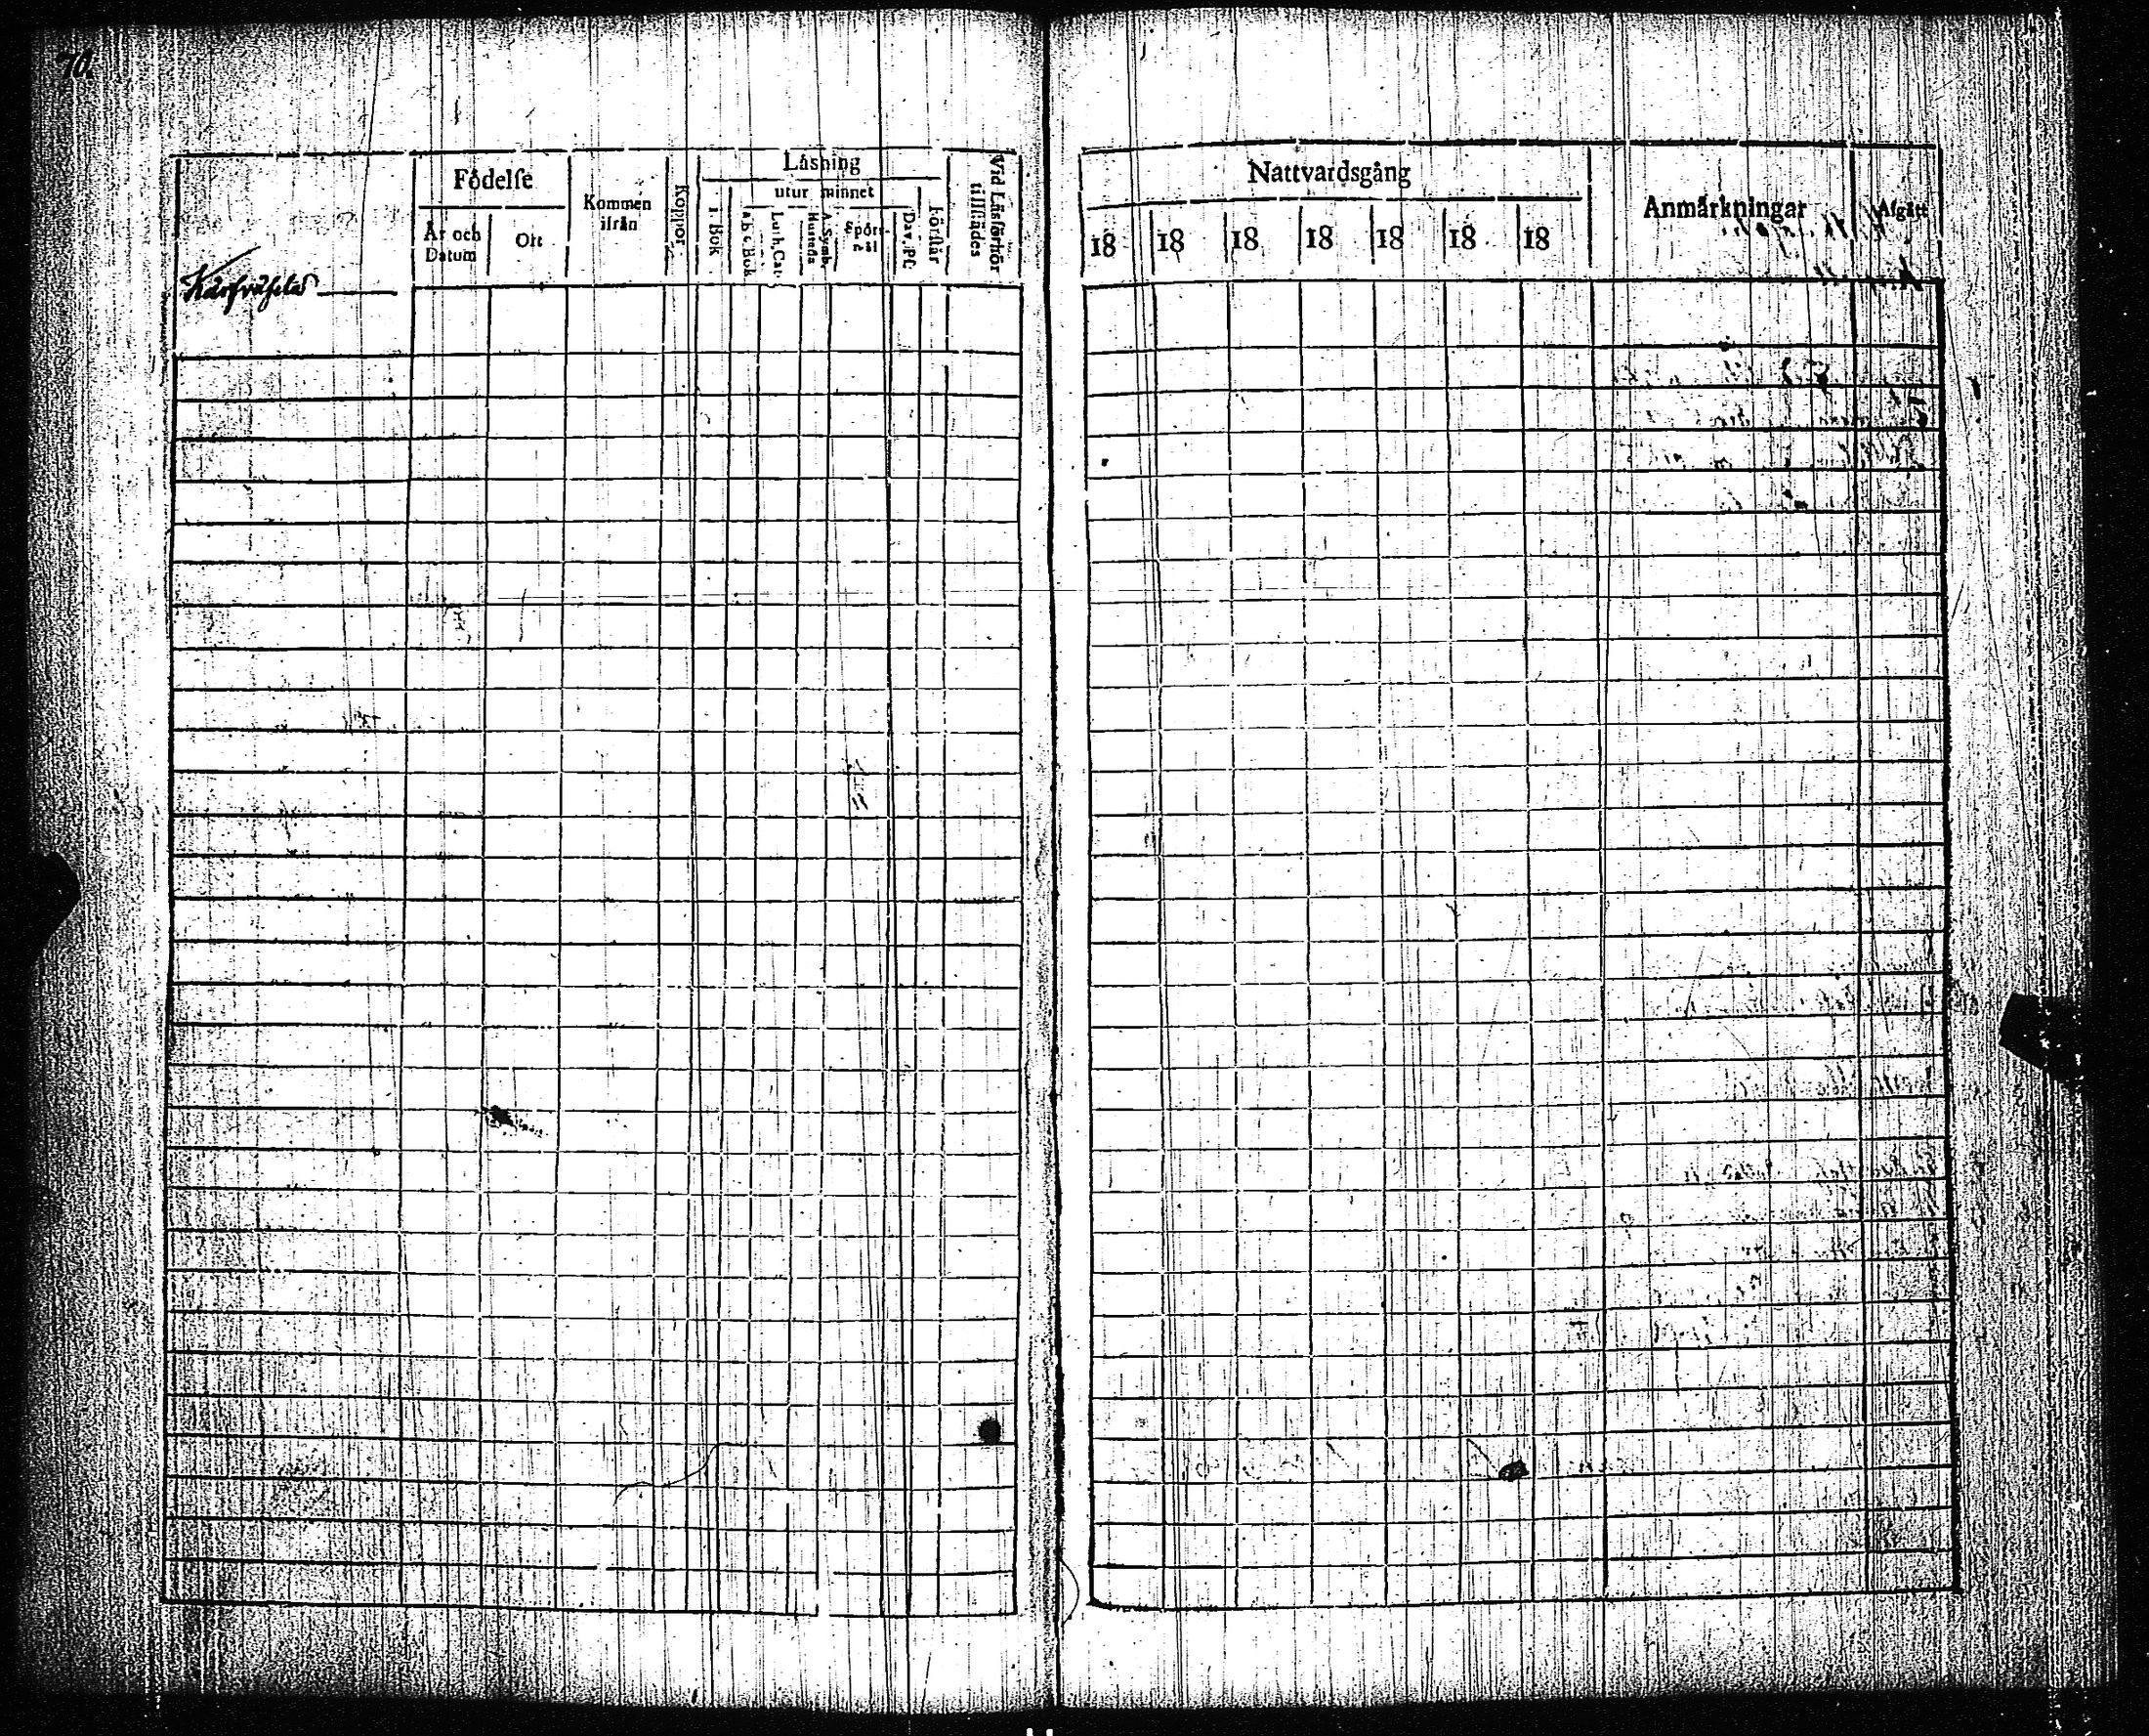 70.
Födelse
År och Datum
Ort
Kommen ifrån
Koppor
Läsning
i Bok
utur minnet
a.b.c. Bok
Luth. Cat.
Hustafla
A. Symb.
Spörsmål
Dav. Ps.
Förstår
Vid Läsförhör tillstädes
Nattvardsgång
18 18 18 18 18 18 18
Anmärkningar
Afgått